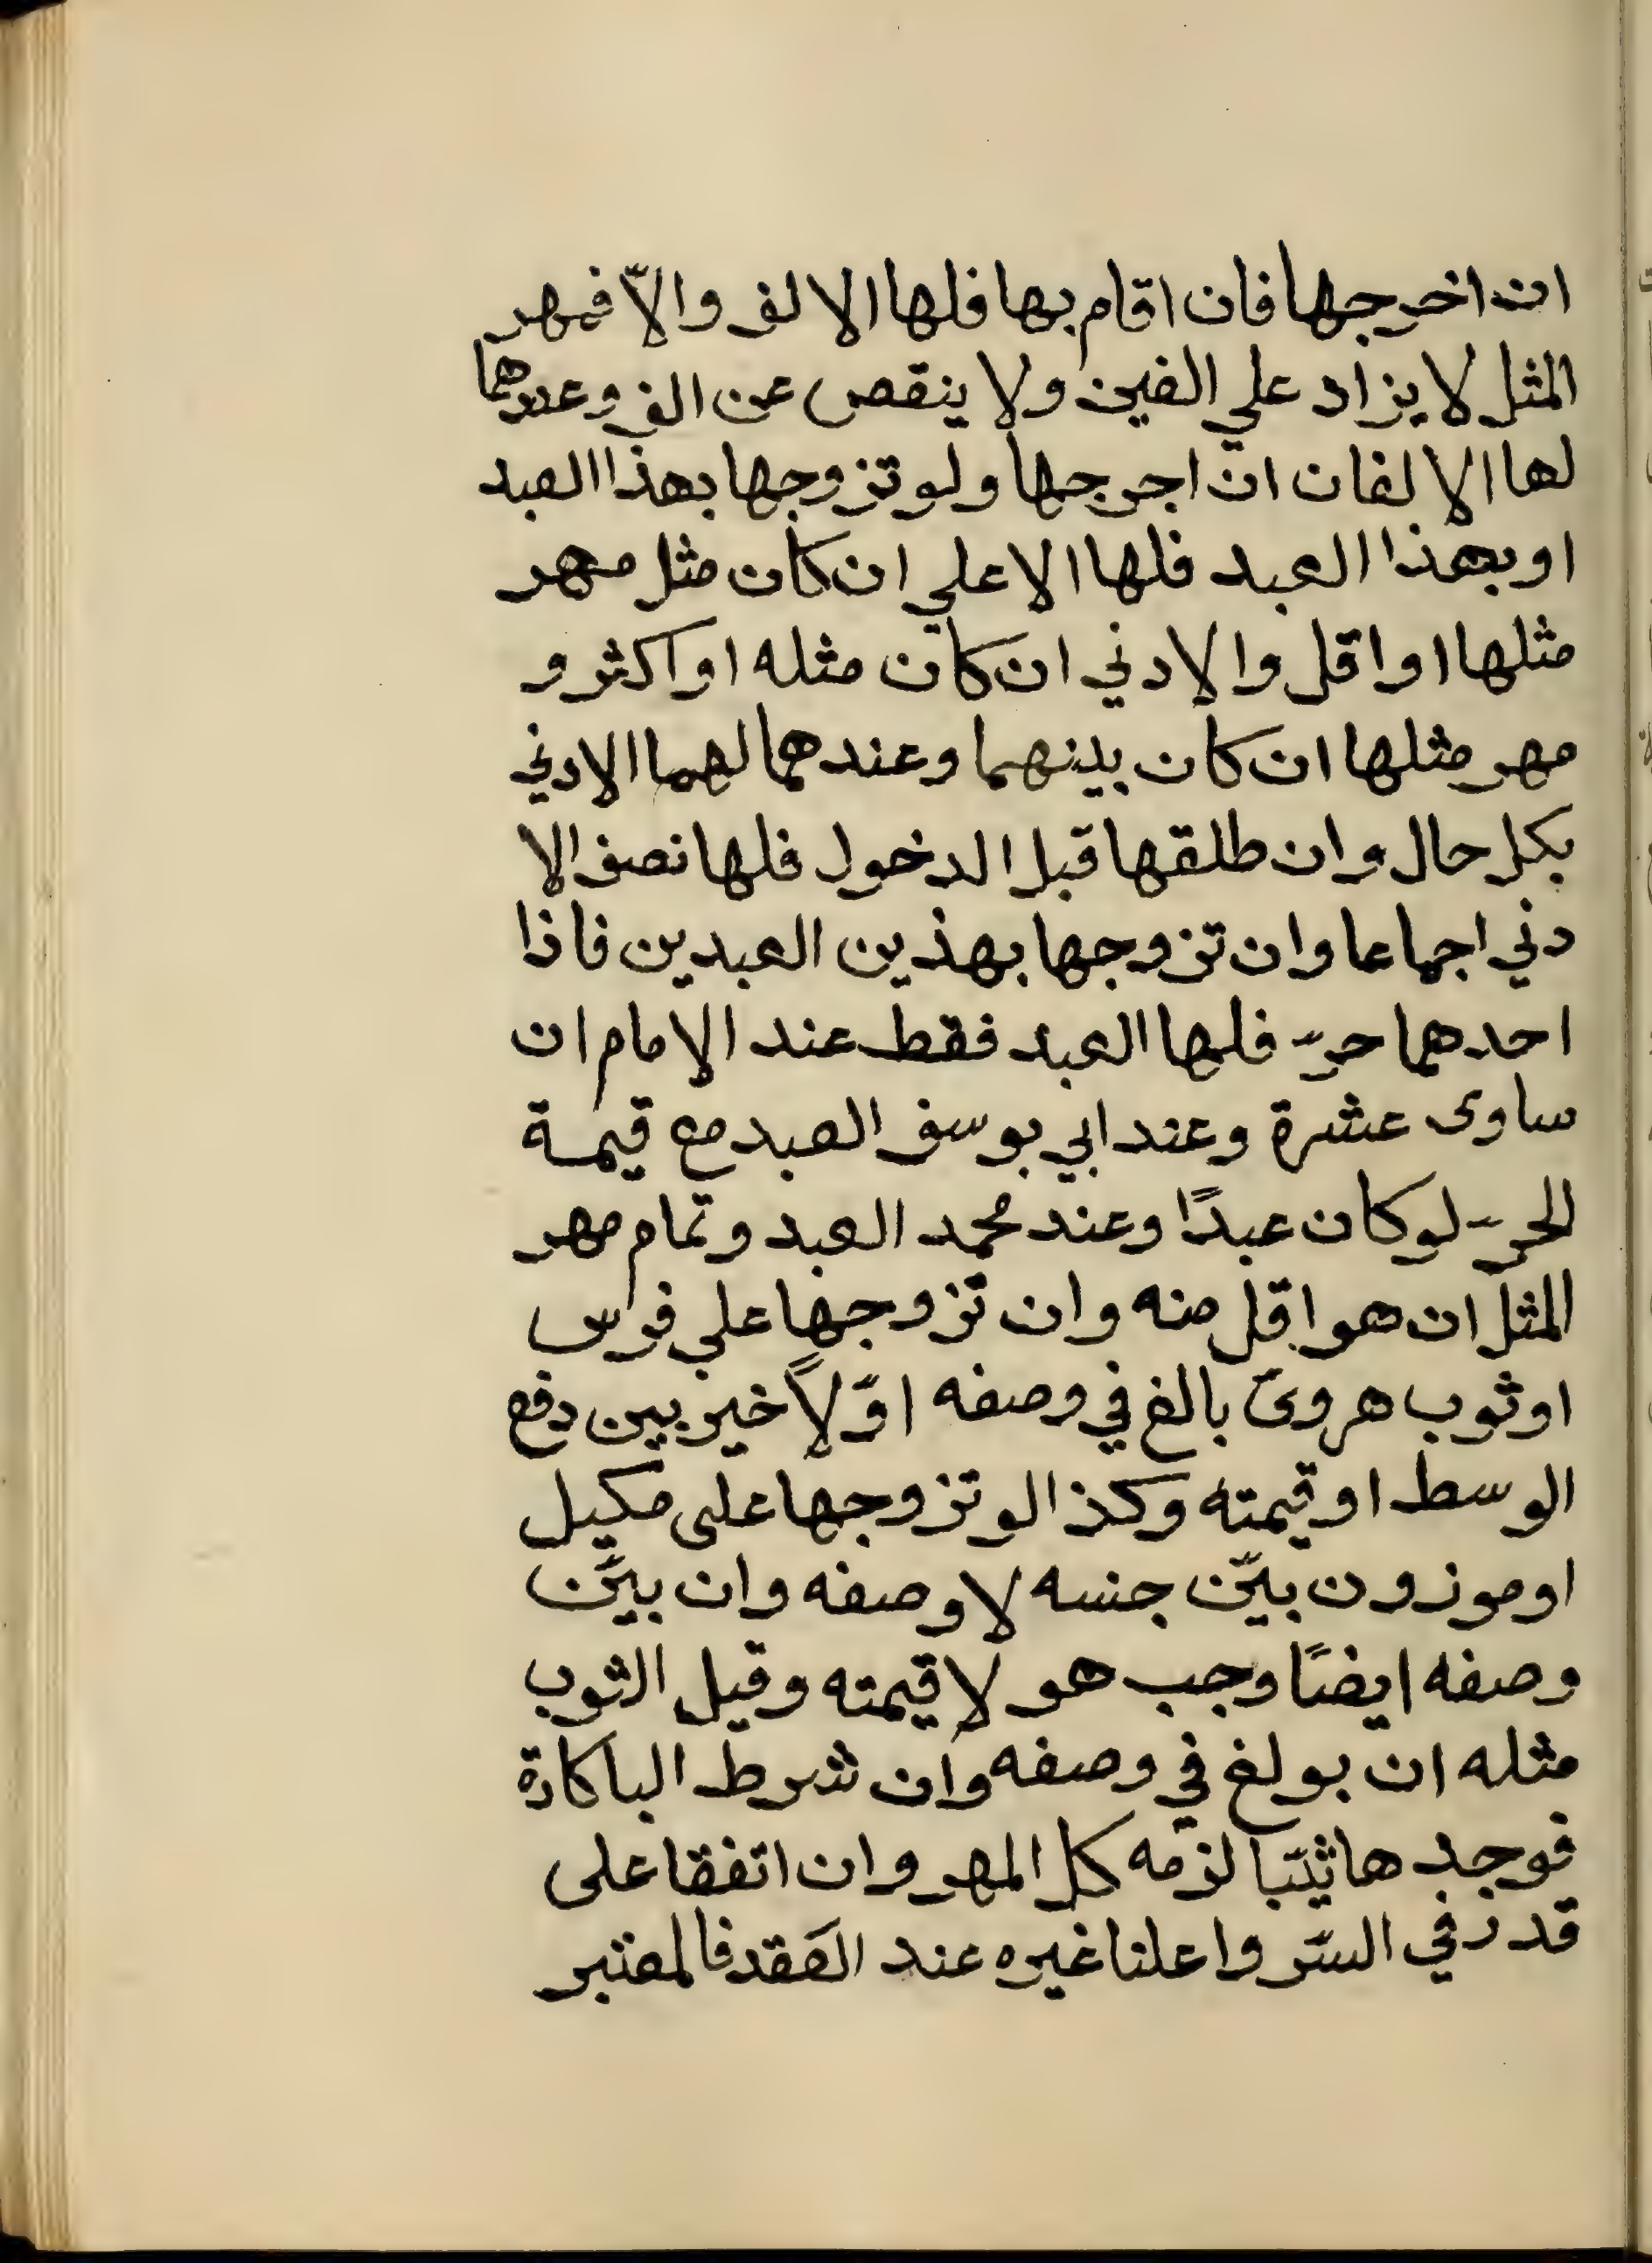 ان اخرجها فان اقام بها فلها الالف والاّ فمهر
المثل لا يزاد علي الفين ولا ينقص عن الف وعندهما
لها الالفان ان اجرجها ولو تزوجها بهذا العبد
او بهذا العبد فلها الاعلي ان كان مثل مهر
مثلها او اقل والادني ان كان مثله او اكثر و
مهر مثلها ان كان بينهما وعندهما لهما الادني
بكل حال وان طلقها قبل الدخول فلها نصف الا
دني اجماعا وان تزوجها بهذين العبدين فاذا
احدهما حرّ فلها العبد فقط عند الامام ان
ساوى عشرة وعند ابي يوسف العبد مع قيمة
الحرّ لو كان عبدًا وعند محمد العبد وتمام مهر
المثل ان هو اقل منه وان تزوجها علي فرس
او ثوب هروىّ بالغ في وصفه اوّلاً خير بين دفع
الوسط او قيمته وكذا لو تزوجها على مكيل
او موزون بيّن جنسه لا وصفه وان بيّن
وصفه ايضًا وجب هو لا قيمته وقيل الثوب
مثله ان بولغ في وصفه وان شرط الباكارة
فوجدها ثيّبا لزمه كل المهر وان اتفقا على
قدر في السّر واعلنا غيره عند العَقد فالمعتبر